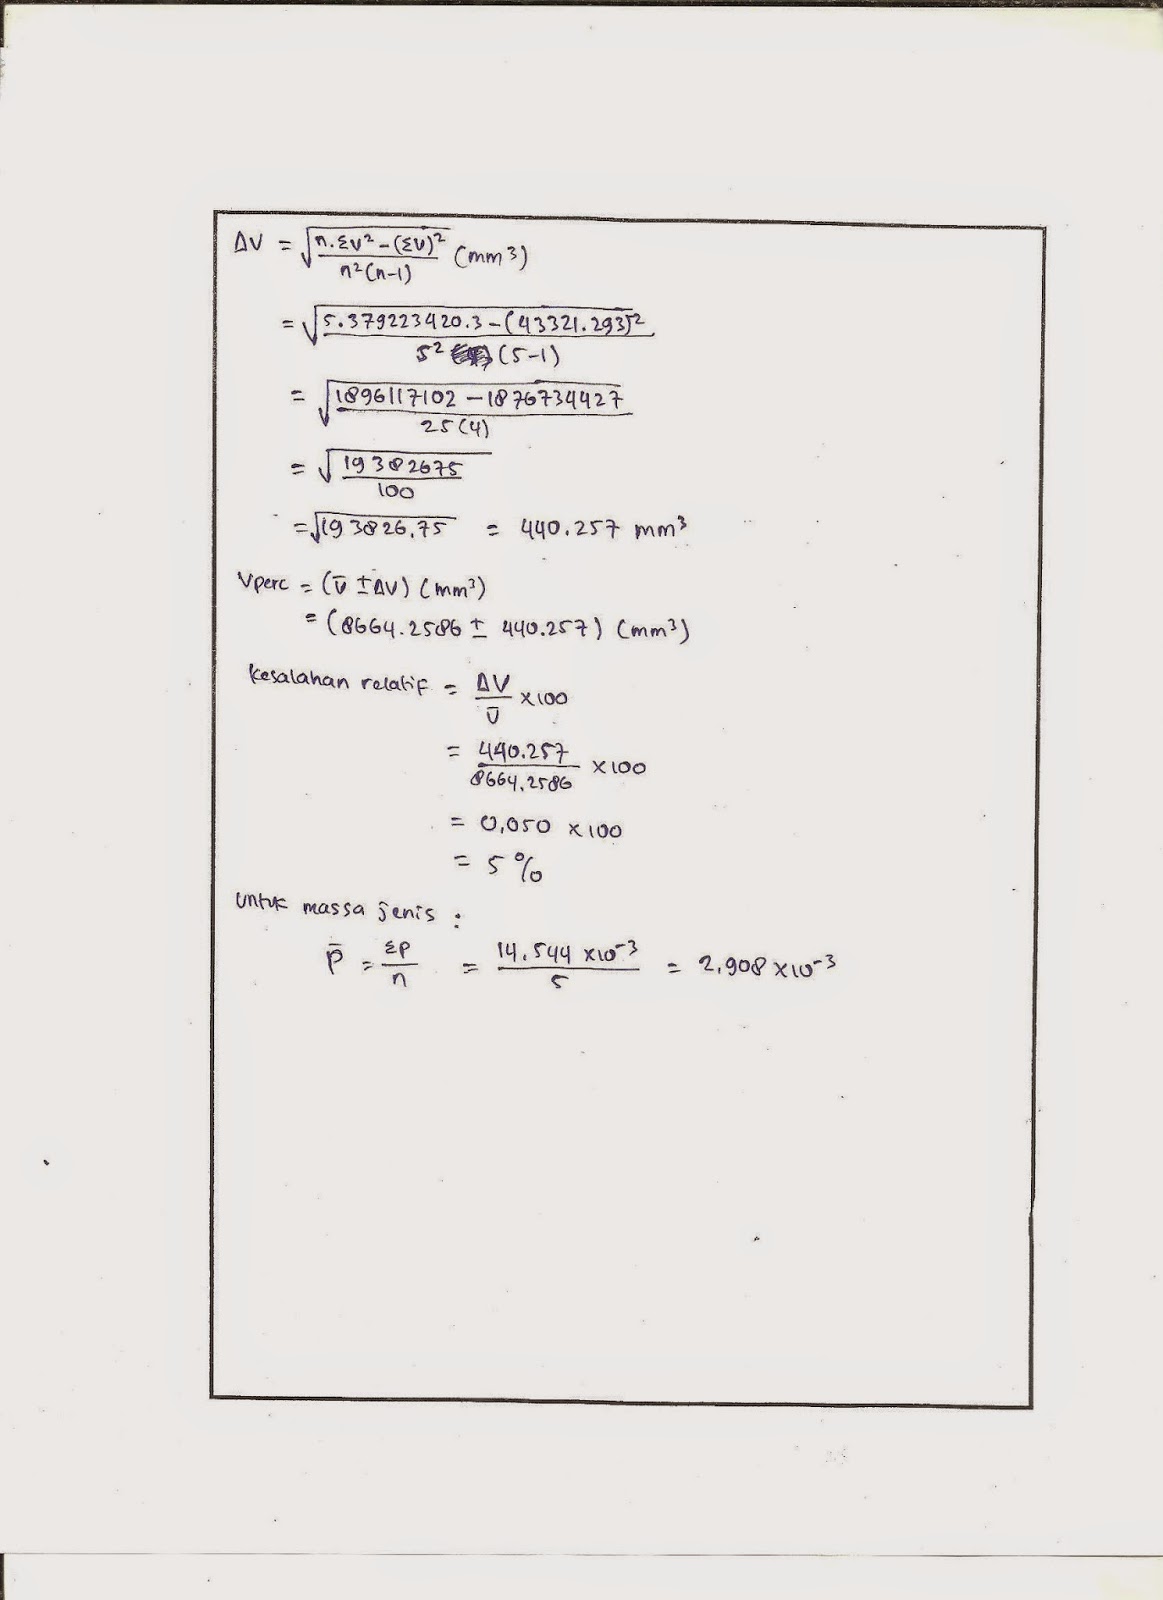 ΔV = √(n.Σv² - (Σv)²)/(n²(n-1)) (mm³)
= √(5.379223420.3 - (43321.293)²)/(5² (5-1))
= √(1896117102 - 1876734427)/(25(4))
= √(19382675/100)
= √193826,75 = 440.257 mm³
Vperc = (v̄ ± ΔV) (mm³)
= (8664.2586 ± 440.257) (mm³)
kesalahan relatif = ΔV/v̄ x100
= 440.257/8664,2586 x100
= 0,050 x100
= 5 %
untuk massa jenis :
P̄ = ΣP/n = 14,544 x10⁻³/5 = 2,908 x10⁻³